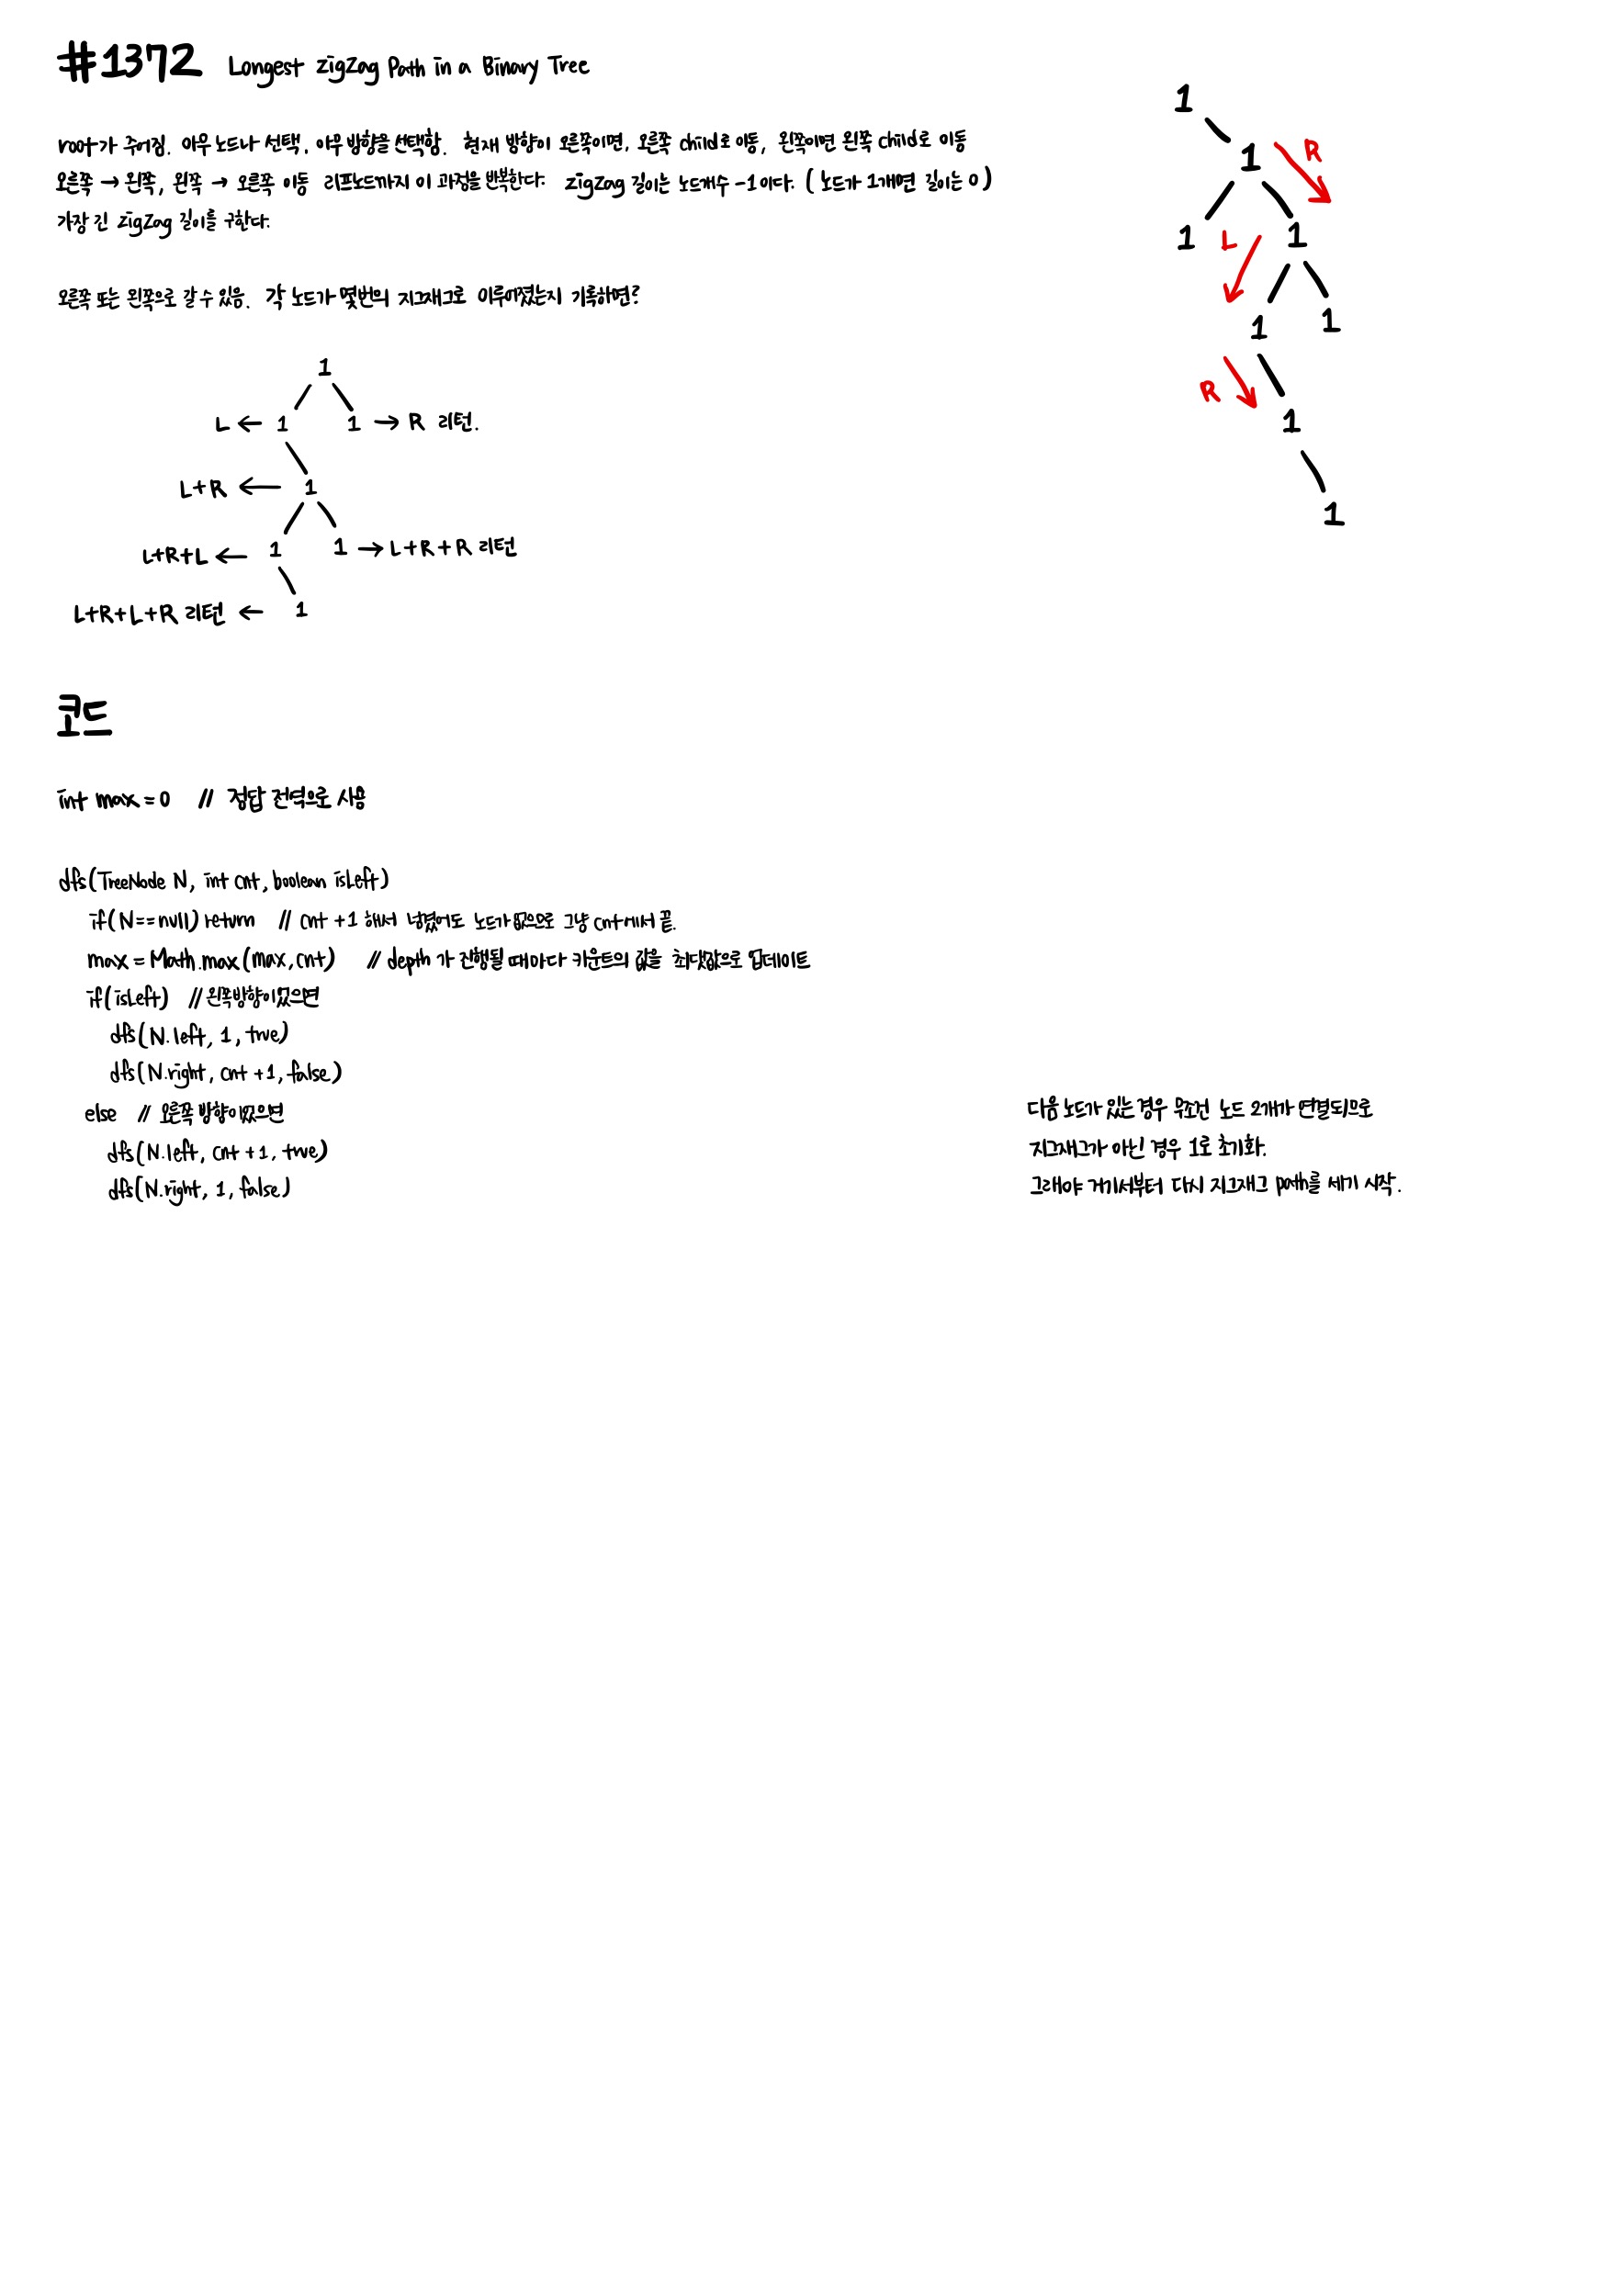 #1372 Longest ZigZag Path in a Binary Tree
root가 주어짐. 아무 노드나 선택, 아무 방향을 선택함. 현재 방향이 오른쪽이면, 오른쪽 child로 이동, 왼쪽이면 왼쪽 child로 이동
오른쪽 → 왼쪽, 왼쪽 → 오른쪽 이동 리프노드까지 이 과정을 반복한다. ZigZag 길이는 노드개수 -1 이다. (노드가 1개면 길이는 0)
가장 긴 ZigZag 길이를 구한다.
오른쪽 또는 왼쪽으로 갈 수 있음. 각 노드가 몇번의 지그재그로 이루어졌는지 기록하면?
1
1 R
1 L 1
1 1
R
1
1
1
L ← 1 1 → R 리턴.
L+R ← 1
L+R+L ← 1 1 → L+R+R 리턴
L+R+L+R 리턴 ← 1
코드
int max = 0 // 정답 전역으로 사용
dfs(TreeNode N, int cnt, boolean isLeft)
if(N==null) return // cnt +1 해서 넘겼어도 노드가 없으므로 그냥 cnt에서 끝.
max = Math.max(max, cnt) // depth 가 진행될 때마다 카운트의 값을 최댓값으로 업데이트
if(isLeft) // 왼쪽방향이었으면
dfs(N.left, 1, true)
dfs(N.right, cnt +1, false)
else // 오른쪽 방향이었으면
dfs(N.left, cnt +1, true)
dfs(N.right, 1, false)
다음 노드가 있는 경우 무조건 노드 2개가 연결되므로
지그재그가 아닌 경우 1로 초기화.
그래야 거기서부터 다시 지그재그 path를 세기 시작.